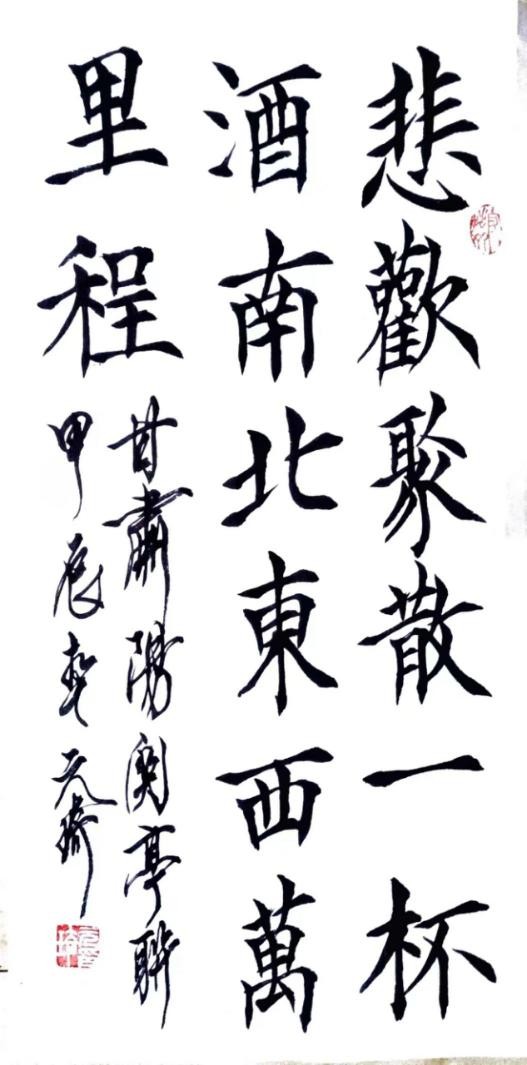 悲歡聚散一杯
酒南北東西萬
里程
甘肅陽関亭聯
甲辰春元琦